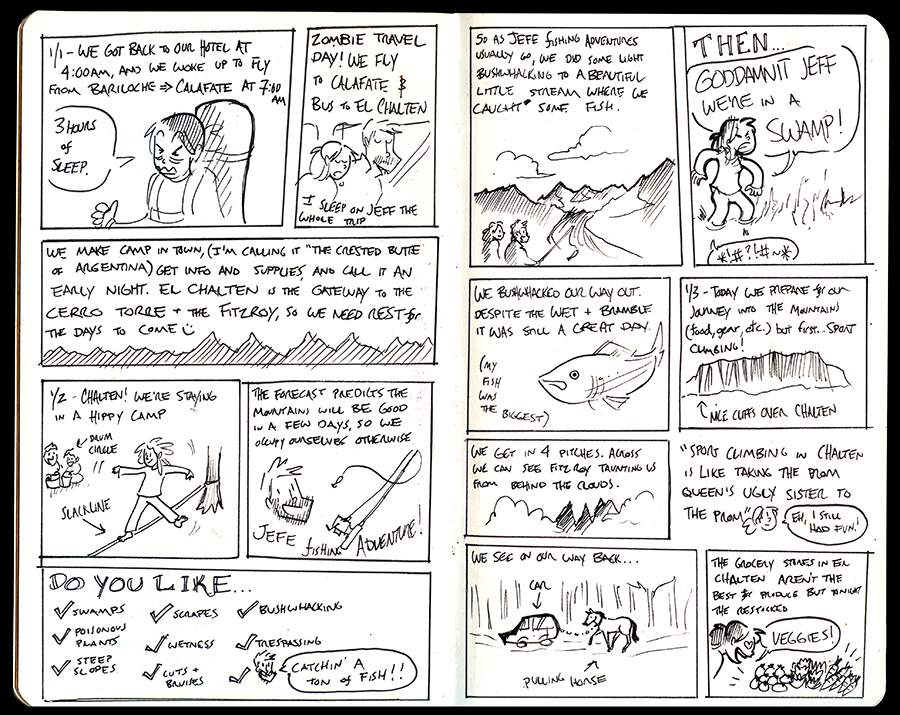 1/1 - WE GOT BACK TO OUR HOTEL AT
4:00AM, AND WE WOKE UP TO FLY
FROM BARILOCHE ⇒ CALAFATE AT 7:00
AM
3 HOURS
OF
SLEEP.
ZOMBIE TRAVEL
DAY! WE FLY
TO CALAFATE &
BUS TO EL CHALTEN
I SLEEP ON JEFF THE
WHOLE TRIP
WE MAKE CAMP IN TOWN, (I'M CALLING IT "THE CRESTED BUTTE
OF ARGENTINA) GET INFO AND SUPPLIES, AND CALL IT AN
EARLY NIGHT. EL CHALTEN IS THE GATEWAY TO THE
CERRO TORRE + THE FITZROY, SO WE NEED REST for
THE DAYS TO COME
1/2 - CHALTEN! WE'RE STAYING
IN A HIPPY CAMP
DRUM
CIRCLE
SLACKLINE
THE FORECAST PREDICTS THE
MOUNTAINS WILL BE GOOD
IN A FEW DAYS, SO WE
OCCUPY OURSELVES OTHERWISE
JEFE fishing ADVENTURE!
DO YOU LIKE...
✓ SWAMPS ✓ SCRAPES ✓ BUSHWHACKING
✓ POISONOUS
PLANTS ✓ WETNESS ✓ TRESPASSING
✓ STEEP
SLOPES ✓ CUTS +
BRUISES ✓ CATCHIN' A
TON OF FISH!!
SO AS JEFE fishing ADVENTURES
USUALLY GO, WE DID SOME LIGHT
BUSHWHACKING TO A BEAUTIFUL
LITTLE STREAM WHERE WE
CAUGHT SOME FISH.
THEN...
GODDAMNIT JEFF
WE'RE IN A
SWAMP!
*!#?!#~*)
WE BUSHWHACKED OUR WAY OUT.
DESPITE THE WET + BRAMBLE
IT WAS STILL A GREAT DAY.
(MY
FISH
WAS
THE
BIGGEST)
1/3 - TODAY WE PREPARE for OUR
JOURNEY INTO THE MOUNTAINS
(food, gear, etc.) but first... SPORT
CLIMBING!
NICE CLIFFS OVER CHALTEN
WE GET IN 4 PITCHES. ACROSS
WE CAN SEE FITZROY TAUNTING US
FROM BEHIND THE CLOUDS.
"SPORT CLIMBING IN CHALTEN
IS LIKE TAKING THE PROM
QUEEN'S UGLY SISTER TO
THE PROM"
EH, I STILL
HAD FUN!
WE SEE ON OUR WAY BACK...
CAR
PULLING HORSE
THE GROCERY STORES IN EL
CHALTEN AREN'T THE
BEST for PRODUCE BUT TONIGHT
THE RESTOCKED
VEGGIES!